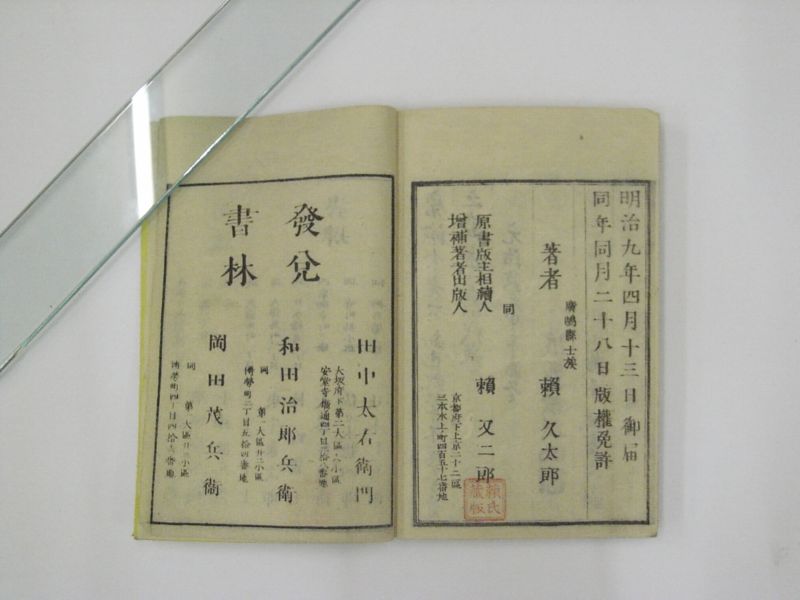 明治九年四月十三日御届
同年同月二十八日版權免許
廣嶋縣士族
著者 賴久太郎
同
原書版主相續人
增補著者出版人
賴又二郎
京都府下上京二十二區
三本木上ノ町四百五十七番地
賴氏藏版
發兌
書林
大坂府下第二大區八小區
田中太右衛門
同 第一大區廿三小區
博勞町二丁目五拾四番地
和田治郎兵衛
同 第一大區廿三小區
博勞町四丁目四拾六番地
岡田茂兵衛